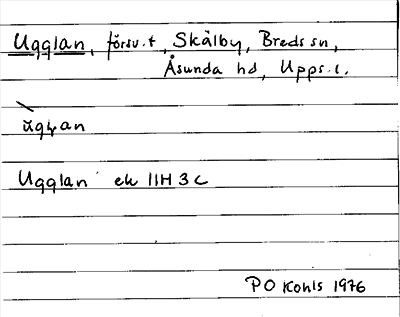 Ugglan, försv. t, Skälby, Breds sn,
Åsunda hd, Upps. l.
Ugglan ek 11H 3c
P O Kohls 1976